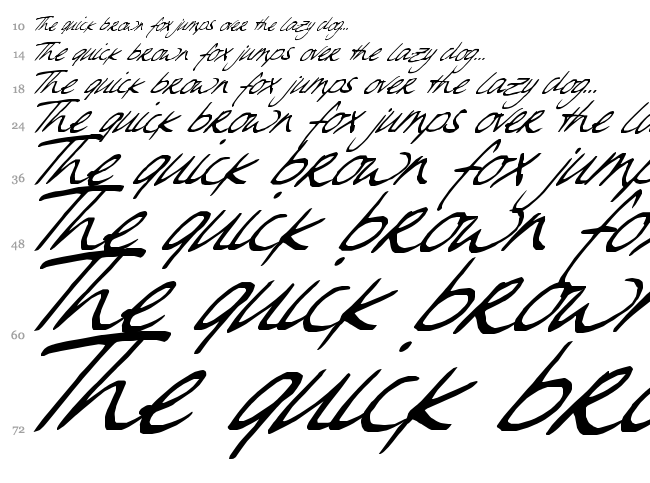 10 The quick brown fox jumps over the lazy dog...
14 The quick brown fox jumps over the lazy dog...
18 The quick brown fox jumps over the lazy dog...
24 The quick brown fox jumps over the la
36 The quick brown fox jum
48 The quick brown fo
60 The quick brown
72 The quick bro